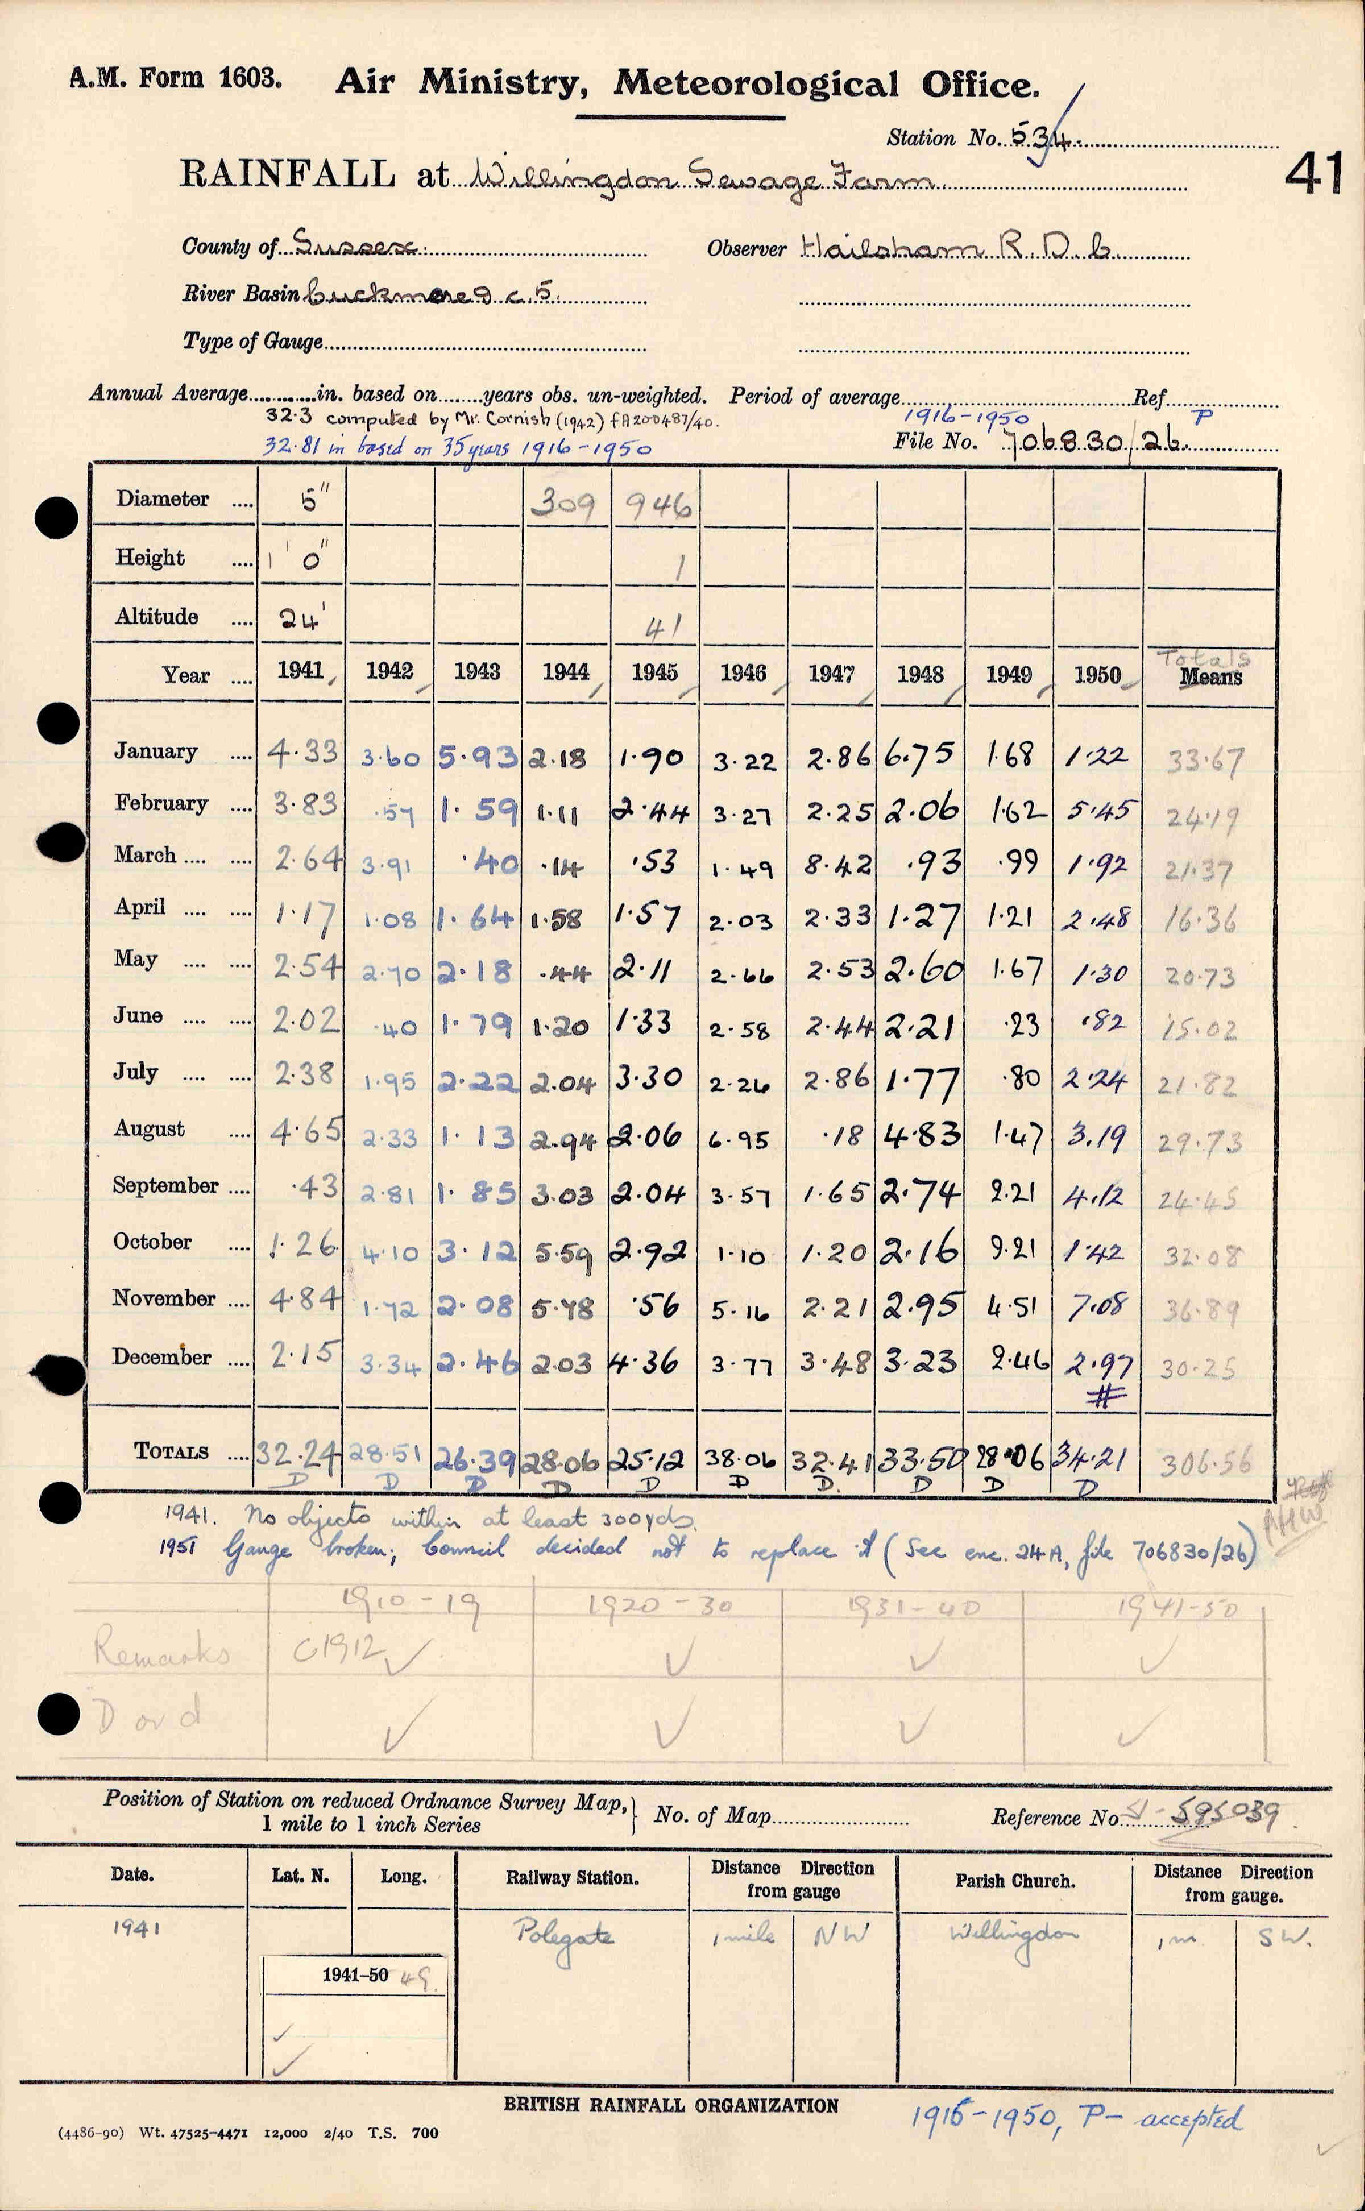 A.M. Form 1603. Air Ministry, Meteorological Office.
Station No. 534
41
RAINFALL at Willingdon Sewage Farm
County of Sussex Observer Hailsham R.D.C.
River Basin Cuckmere 9 c.5
Type of Gauge
Annual Average in. based on years obs. un-weighted. Period of average 1916-1950 Ref P
32.3 computed by Mr. Cornish (1942) fA200487/40.
32.81 in based on 35 years 1916-1950 File No. 706830/26.
Diameter .... 5" 309 946
Height .... 1' 0" 1
Altitude .... 24' 41
Totals
Year .... 1941 1942 1943 1944 1945 1946 1947 1948 1949 1950 Means
January .... 4.33 3.60 5.93 2.18 1.90 3.22 2.86 6.75 1.68 1.22 33.67
February .... 3.83 .57 1.59 1.11 2.44 3.27 2.25 2.06 1.62 5.45 24.19
March .... .... 2.64 3.91 .40 .14 .53 1.49 8.42 .93 .99 1.92 21.37
April .... .... 1.17 1.08 1.64 1.58 1.57 2.03 2.33 1.27 1.21 2.48 16.36
May .... .... 2.54 2.70 2.18 .44 2.11 2.66 2.53 2.60 1.67 1.30 20.73
June .... .... 2.02 .40 1.79 1.20 1.33 2.58 2.44 2.21 .23 .82 15.02
July .... .... 2.38 1.95 2.22 2.04 3.30 2.26 2.86 1.77 .80 2.24 21.82
August .... 4.65 2.33 1.13 2.94 2.06 6.95 .18 4.83 1.47 3.19 29.73
September .... .43 2.81 1.85 3.03 2.04 3.57 1.65 2.74 2.21 4.12 24.45
October .... 1.26 4.10 3.12 5.59 2.92 1.10 1.20 2.16 9.21 1.42 32.08
November .... 4.84 1.72 2.08 5.78 .56 5.16 2.21 2.95 4.51 7.08 36.89
December .... 2.15 3.34 2.46 2.03 4.36 3.77 3.48 3.23 2.46 2.97 30.25
#
TOTALS .... 32.24 28.51 26.39 28.06 25.12 38.06 32.41 33.50 28.06 34.21 306.56
D D D D D D D. D D D
1941. No objects within at least 300yds.
AHW
1951 Gauge broken; Council decided not to replace it (See enc. 24A, file 706830/26)
1910-19 1920-30 1931-40 1941-50
Remarks C1912 ✓ ✓ ✓ ✓
D or d ✓ ✓ ✓ ✓
Position of Station on reduced Ordnance Survey Map, } No. of Map Reference No 595039
1 mile to 1 inch Series
Date. Lat. N. Long. Railway Station. Distance Direction from gauge Parish Church. Distance Direction from gauge.
1941 Polegate 1 mile NW Willingdon 1m SW.
1941-50 49.
✓
✓
BRITISH RAINFALL ORGANIZATION
1916-1950, P- accepted
(4486-90) Wt. 47525-4471 12,000 2/40 T.S. 700